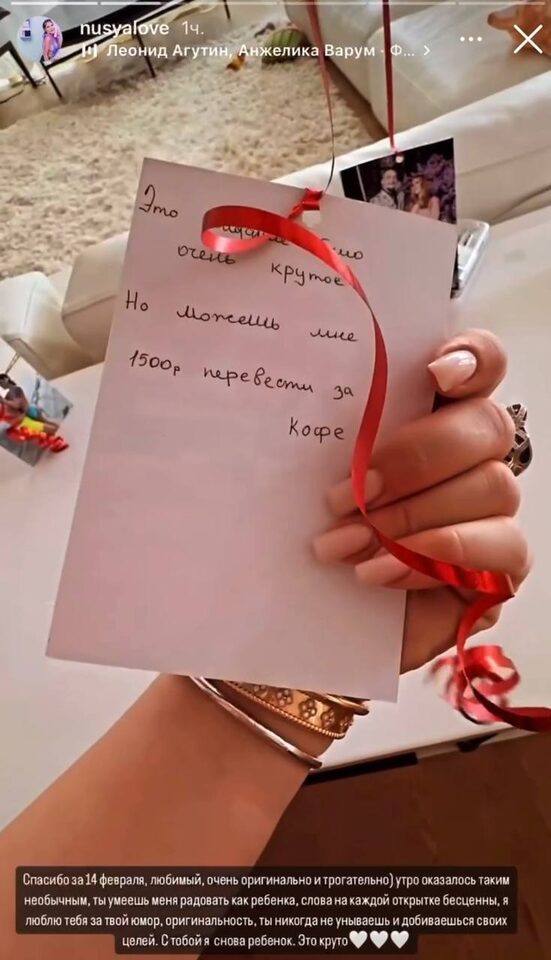 nusyalove 1ч.
Леонид Агутин, Анжелика Варум · Ф... >
Это
очень крутое
Но можешь мне
1500р перевести за
кофе
Спасибо за 14 февраля, любимый, очень оригинально и трогательно) утро оказалось таким
необычным, ты умеешь меня радовать как ребенка, слова на каждой открытке бесценны, я
люблю тебя за твой юмор, оригинальность, ты никогда не унываешь и добиваешься своих
целей. С тобой я снова ребенок. Это круто🤍🤍🤍